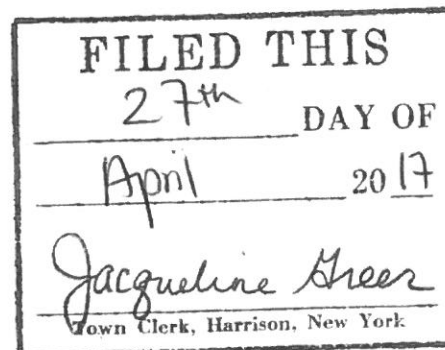 FILED THIS
27th DAY OF
April 2017
Jacqueline Greer
Town Clerk, Harrison, New York